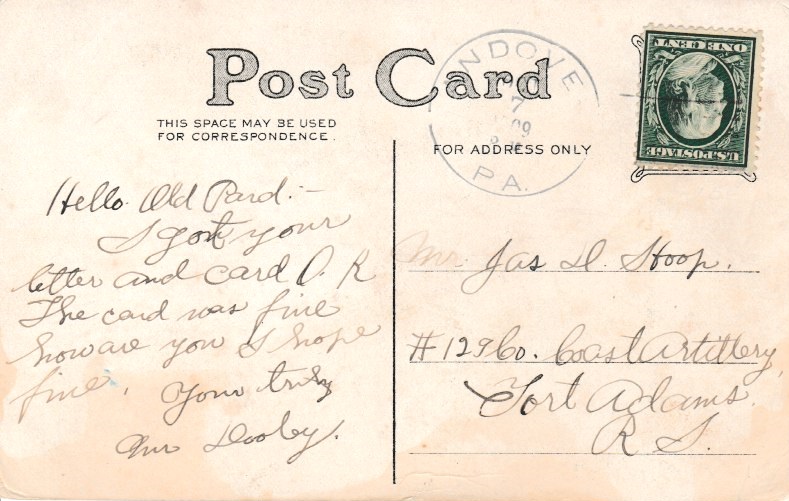 Post Card
THIS SPACE MAY BE USED
FOR CORRESPONDENCE.
FOR ADDRESS ONLY
NDOVE
7
09
PA.
ONE CENT
U.S. POSTAGE
Hello Old Pard:-
I got your
letter and card O.K
The card was fine
how are you I hope
fine.
Your truly
Dooby.
Mr. Jas D. Stoop.
#129 Co. Coast Artillery,
Fort Adams.
R I.